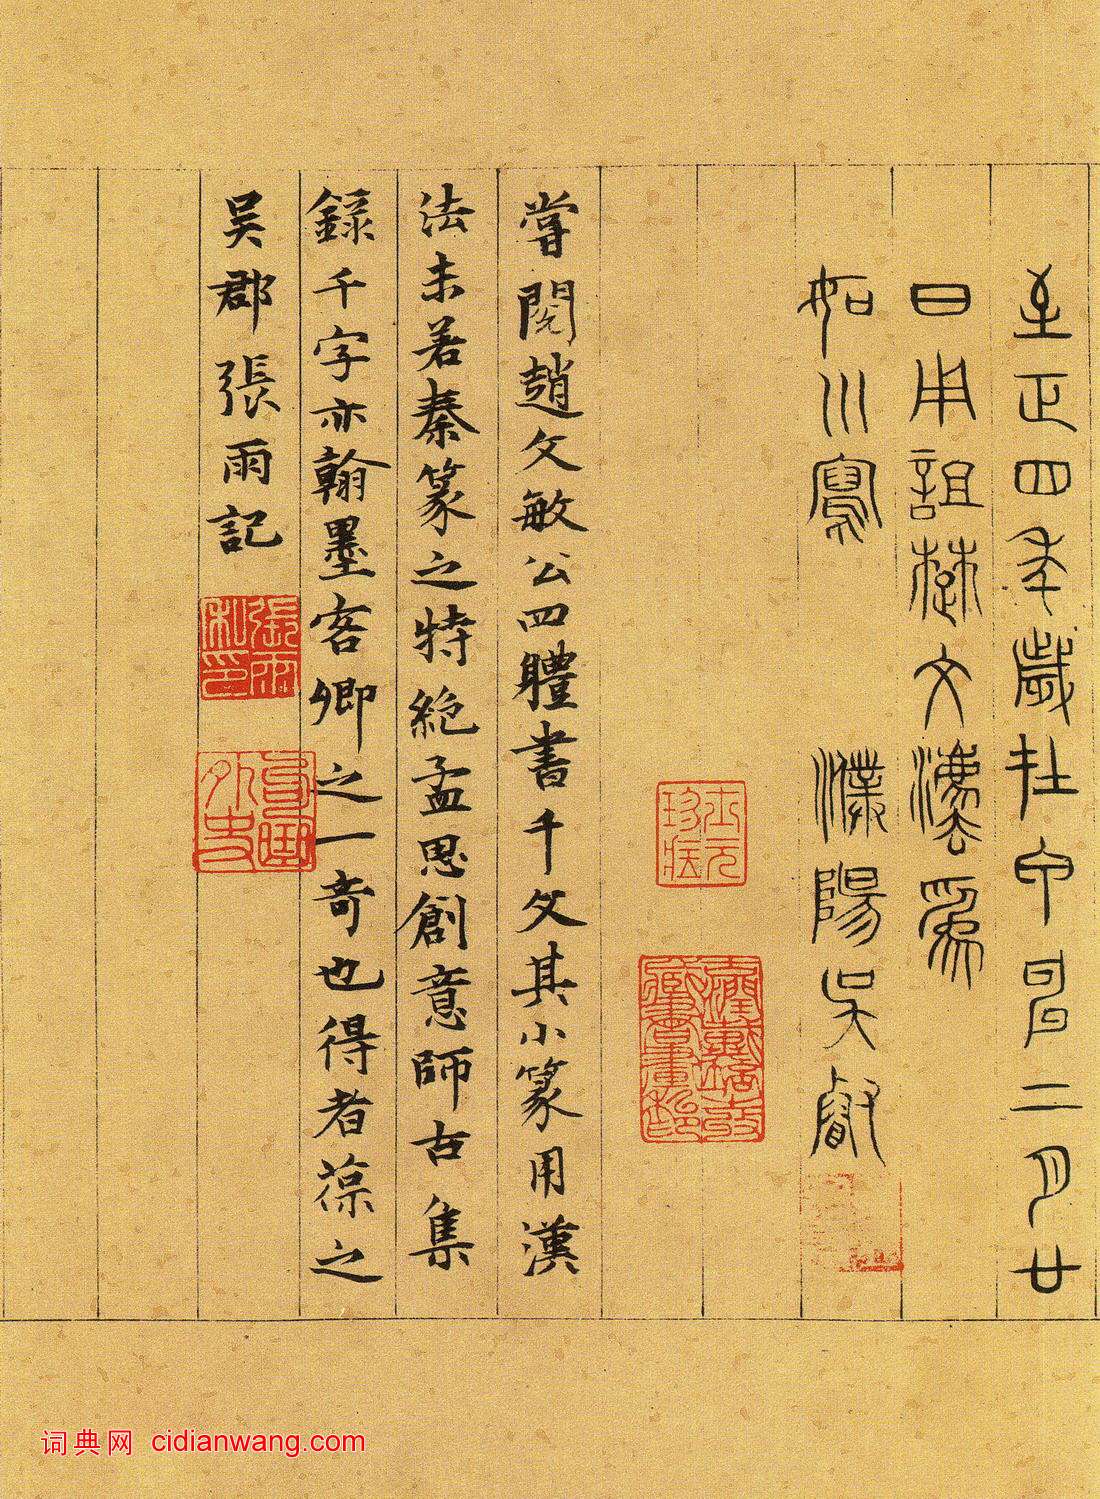 至正四年歲在甲申二月廿
日用詛楚文漢法為
如川寫 濮陽吳叡
嘗閱趙文敏公四體書千文其小篆用漢
法未若秦篆之特絶孟思創意師古集
錄千字亦翰墨客卿之一奇也得者葆之
吳郡張雨記
張雨私印
句曲外史
词典网 cidianwang.com